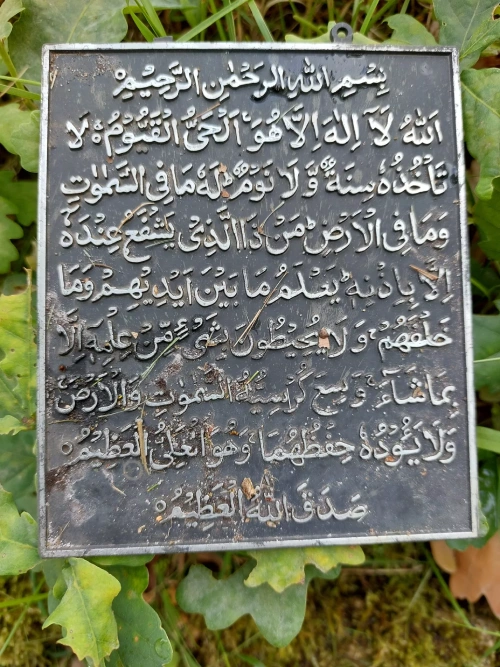 بِسْمِ اللهِ الرَّحْمٰنِ الرَّحِيْمِ
اَللهُ لَآ اِلٰهَ اِلَّا هُوَ ۚ اَلْحَيُّ الْقَيُّوْمُ ۚ لَا
تَاْخُذُهٗ سِنَةٌ وَّلَا نَوْمٌ ؕ لَهٗ مَا فِي السَّمٰوٰتِ
وَمَا فِي الْاَرْضِ ؕ مَنْ ذَا الَّذِيْ يَشْفَعُ عِنْدَهٗٓ
اِلَّا بِاِذْنِهٖ ؕ يَعْلَمُ مَا بَيْنَ اَيْدِيْهِمْ وَمَا
خَلْفَهُمْ ۚ وَلَا يُحِيْطُوْنَ بِشَيْءٍ مِّنْ عِلْمِهٖٓ اِلَّا
بِمَا شَآءَ ۚ وَسِعَ كُرْسِيُّهُ السَّمٰوٰتِ وَالْاَرْضَ ۚ
وَلَا يَئُوْدُهٗ حِفْظُهُمَا ۚ وَهُوَ الْعَلِيُّ الْعَظِيْمُ ۚ
صَدَقَ اللهُ الْعَظِيْمُ ۚ